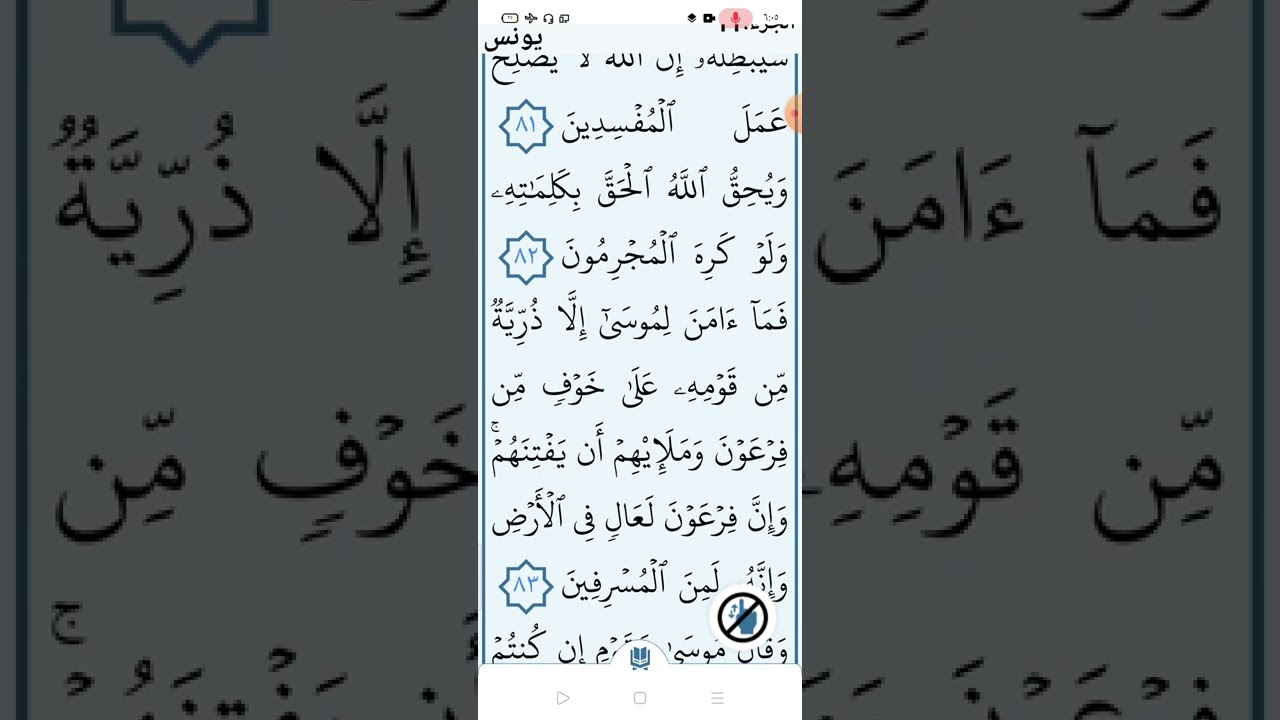 يونس
سَيُبْطِلُهُۥٓ إِنَّ ٱللَّهَ لَا يُصْلِحُ
عَمَلَ ٱلْمُفْسِدِينَ ٨١
وَيُحِقُّ ٱللَّهُ ٱلْحَقَّ بِكَلِمَٰتِهِۦ
وَلَوْ كَرِهَ ٱلْمُجْرِمُونَ ٨٢
فَمَآ ءَامَنَ لِمُوسَىٰٓ إِلَّا ذُرِّيَّةٌ
مِّن قَوْمِهِۦ عَلَىٰ خَوْفٍ مِّن
فِرْعَوْنَ وَمَلَإِيْهِمْ أَن يَفْتِنَهُمْ ۚ
وَإِنَّ فِرْعَوْنَ لَعَالٍ فِى ٱلْأَرْضِ
وَإِنَّهُۥ لَمِنَ ٱلْمُسْرِفِينَ ٨٣
وَقَالَ مُوسَىٰ يَٰقَوْمِ إِن كُنتُمْ